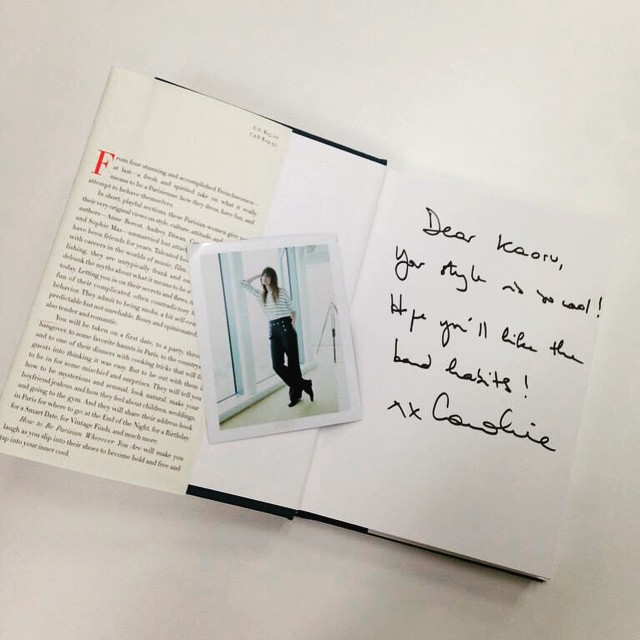 From four stunning and accomplished Frenchwomen—
at last—a fresh and spirited take on what it really
means to be a Parisienne: how they dress, have fun, and
attempt to behave themselves.
In short, playful sections, these Parisian women give
their very original views on style, culture, attitude
authors—Anne Berest, Audrey Diwan,
and Sophie Mas—unmarried but
have been friends for years. Talented
with careers in the worlds of music, film,
lishing, they are untypically frank and
debunk the myths about what it means to be
today. Letting you in on their secrets and flaws,
fun of their complicated, often contradictory
behavior. They admit to being snobs, a bit
predictable but not unreliable. Bossy and opinionated
also tender and romantic.
You will be taken on a first date, to a party,
hangover, to some favorite haunts in Paris, to the country,
and to one of their dinners with cooking tricks that will
guests into thinking it was easy. But to be out with them
to be in for some mischief and surprises. They will tell you
how to be mysterious and sensual, look natural, make your
boyfriend jealous and how they feel about children, weddings,
and going to the gym. And they will share their address book
in Paris for where to go: at the End of the Night, for a Birthday,
for a Smart Date, for Vintage Finds, and much more.
How to Be Parisian Wherever You Are will make you
laugh as you slip into their shoes to become bold and free and
tap into your inner cool.
Dear Kaoru,
Your style is so cool!
Hope you'll like the
bad habits!
xx Caroline